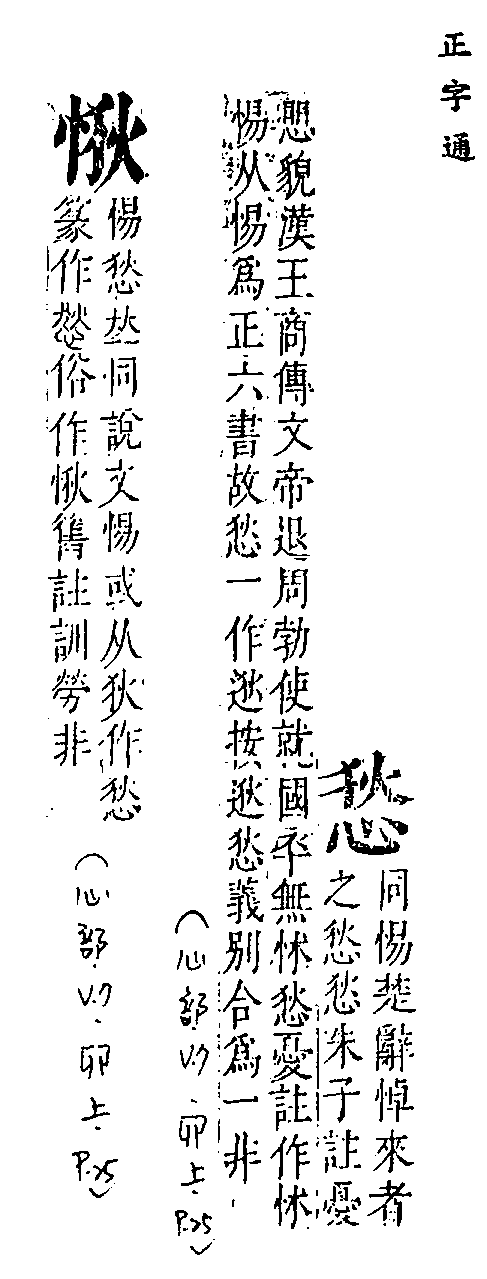 正字通
悐
同惕楚辭悼來者
之悐悐朱子註憂
愳貌漢王商傳文帝退周勃使就國卒無怵悐憂註作怵
惕从惕爲正六書故悐一作逖按逖悐義别合爲一非
(心部 V.7. 卯上. P.25)
惕悐𠀤同說文惕或从狄作悐
篆作悐俗作舊註訓勞非
(心部 V.7. 卯上. P.25)